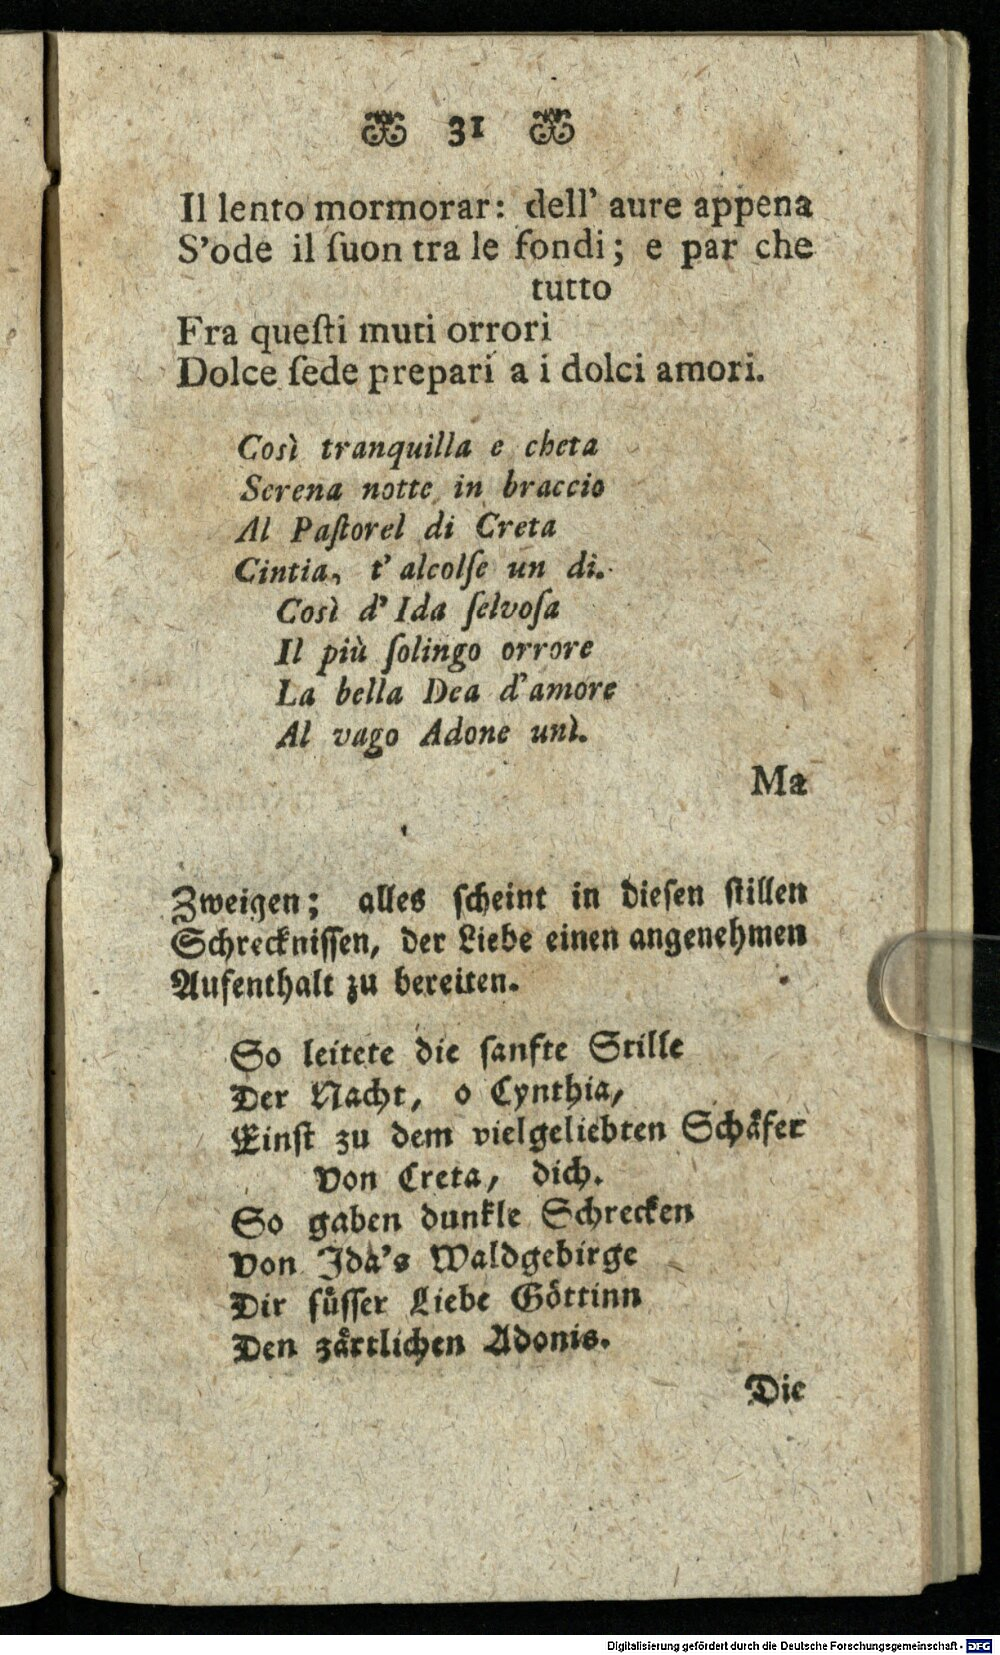 31
Il lento mormorar: dell' aure appena
S'ode il ſuon tra le fondi; e par che
tutto
Fra queſti muti orrori
Dolce ſede prepari a i dolci amori.
Così tranquilla e cheta
Serena notte in braccio
Al Paſtorel di Creta
Cintia, t' alcolſe un dì.
Così d' Ida ſelvoſa
Il più ſolingo orrore
La bella Dea d'amore
Al vago Adone unì.
Ma
Zweigen; alles ſcheint in dieſen ſtillen
Schreckniſſen, der Liebe einen angenehmen
Aufenthalt zu bereiten.
So leitete die ſanfte Stille
Der Nacht, o Cynthia,
Einſt zu dem vielgeliebten Schäfer
von Creta, dich.
So gaben dunkle Schrecken
Von Ida's Waldgebirge
Dir ſüſſer Liebe Göttinn
Den zärtlichen Adonis.
Die
Digitalisierung gefördert durch die Deutsche Forschungsgemeinschaft - DFG